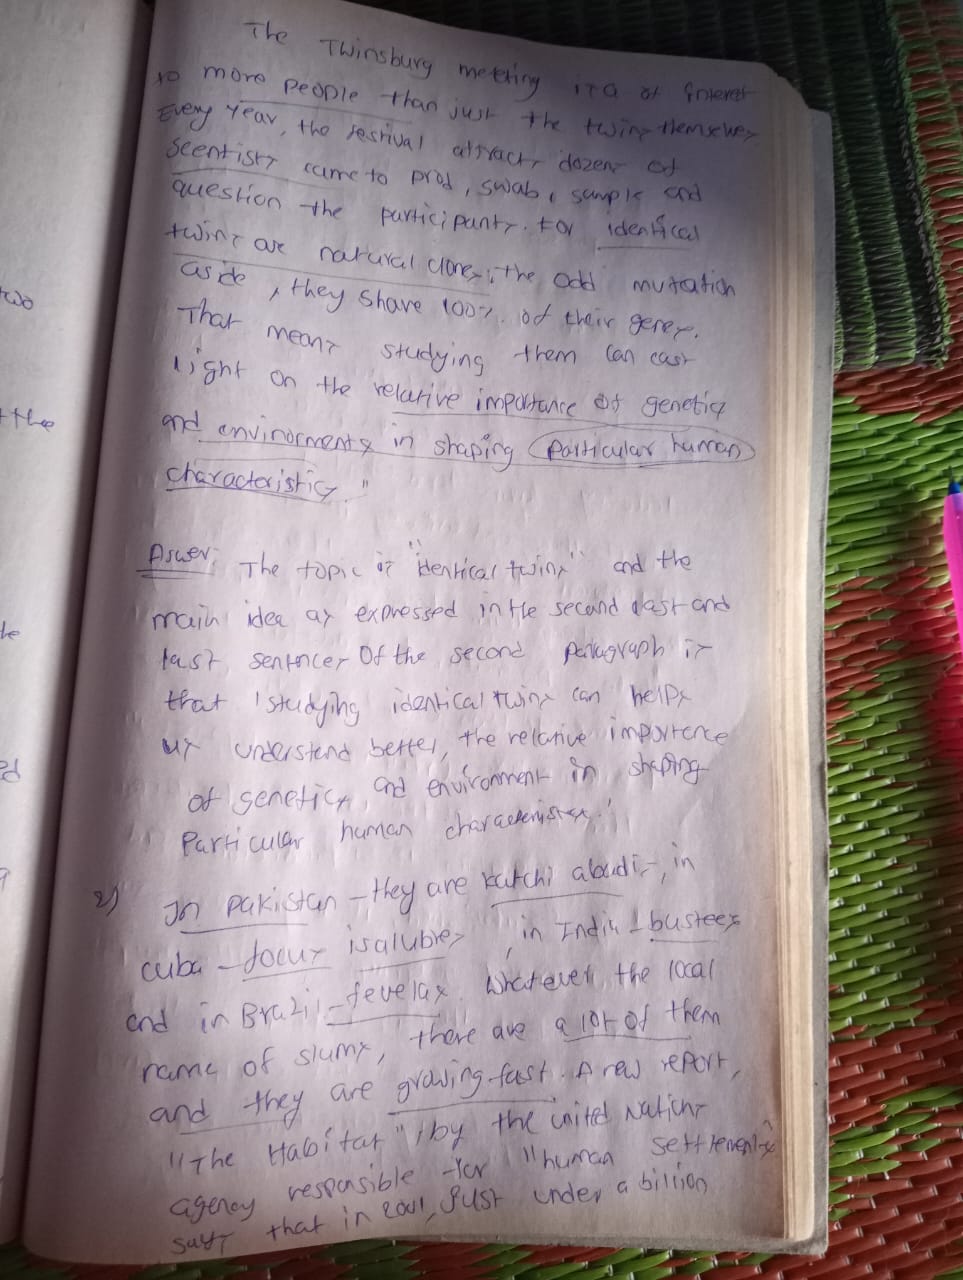 The Twinsburg meeting is a of interest
to more people than just the twins themselves
Every year, the festival attracts dozens of
Scentists came to prod, swab, sample and
question the participants. For identical
twins are natural clones, the odd mutation
aside, they share 100% of their genes.
That means studying them can cast
light on the relative importance of genetics
and envinorments in shaping particular human
characteristics."
Aswer: The topic is "identical twins" and the
main idea as expressed in the second last and
last sentences of the second paragraph is
that 'studying identical twins can helps
us understand better, the relative importence
of genetics, and environment in shaping
Particular human characteristics.'
2) In Pakistan - they are katchi abadis, in
cuba - focus isalubres, in India - bustees
and in Brazil - fevelas. Whatever the local
name of slums, there are a lot of them
and they are growing fast. A new report,
"The Habitat", by the united Nations
agency responsible for "human settlements
says that in 2001, Just under a billion
two
the